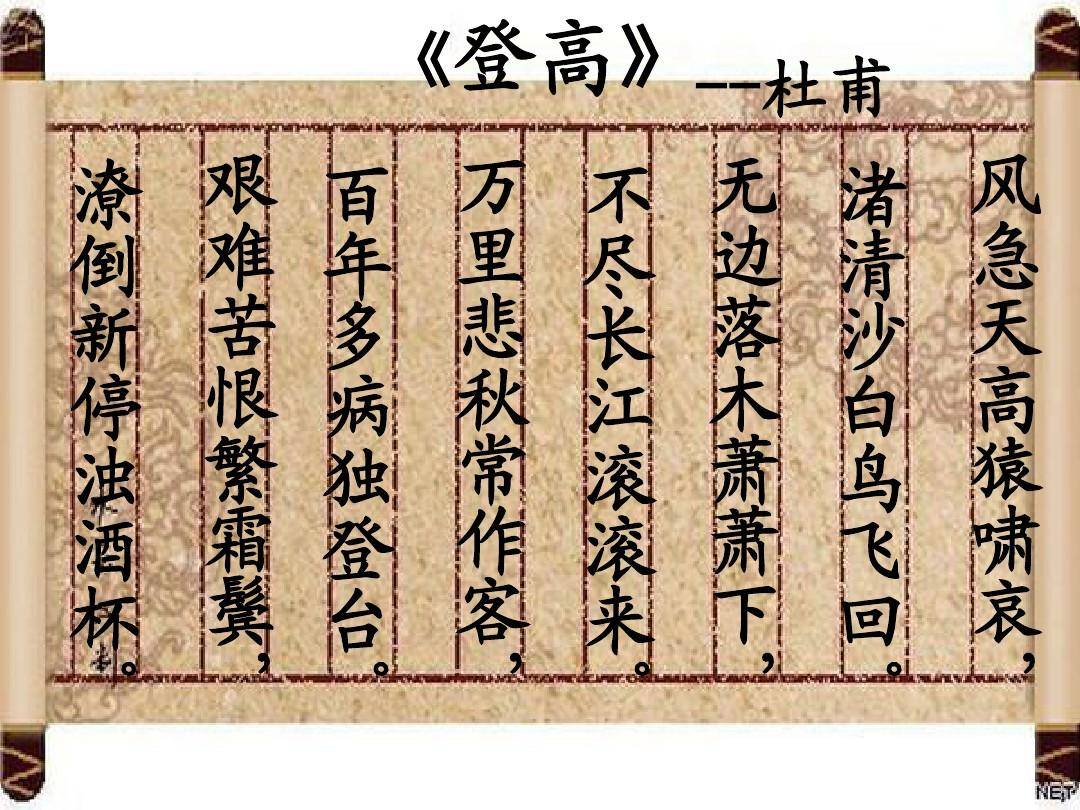 《登高》
--杜甫
风急天高猿啸哀，
渚清沙白鸟飞回。
无边落木萧萧下，
不尽长江滚滚来。
万里悲秋常作客，
百年多病独登台。
艰难苦恨繁霜鬓，
潦倒新停浊酒杯。
NET